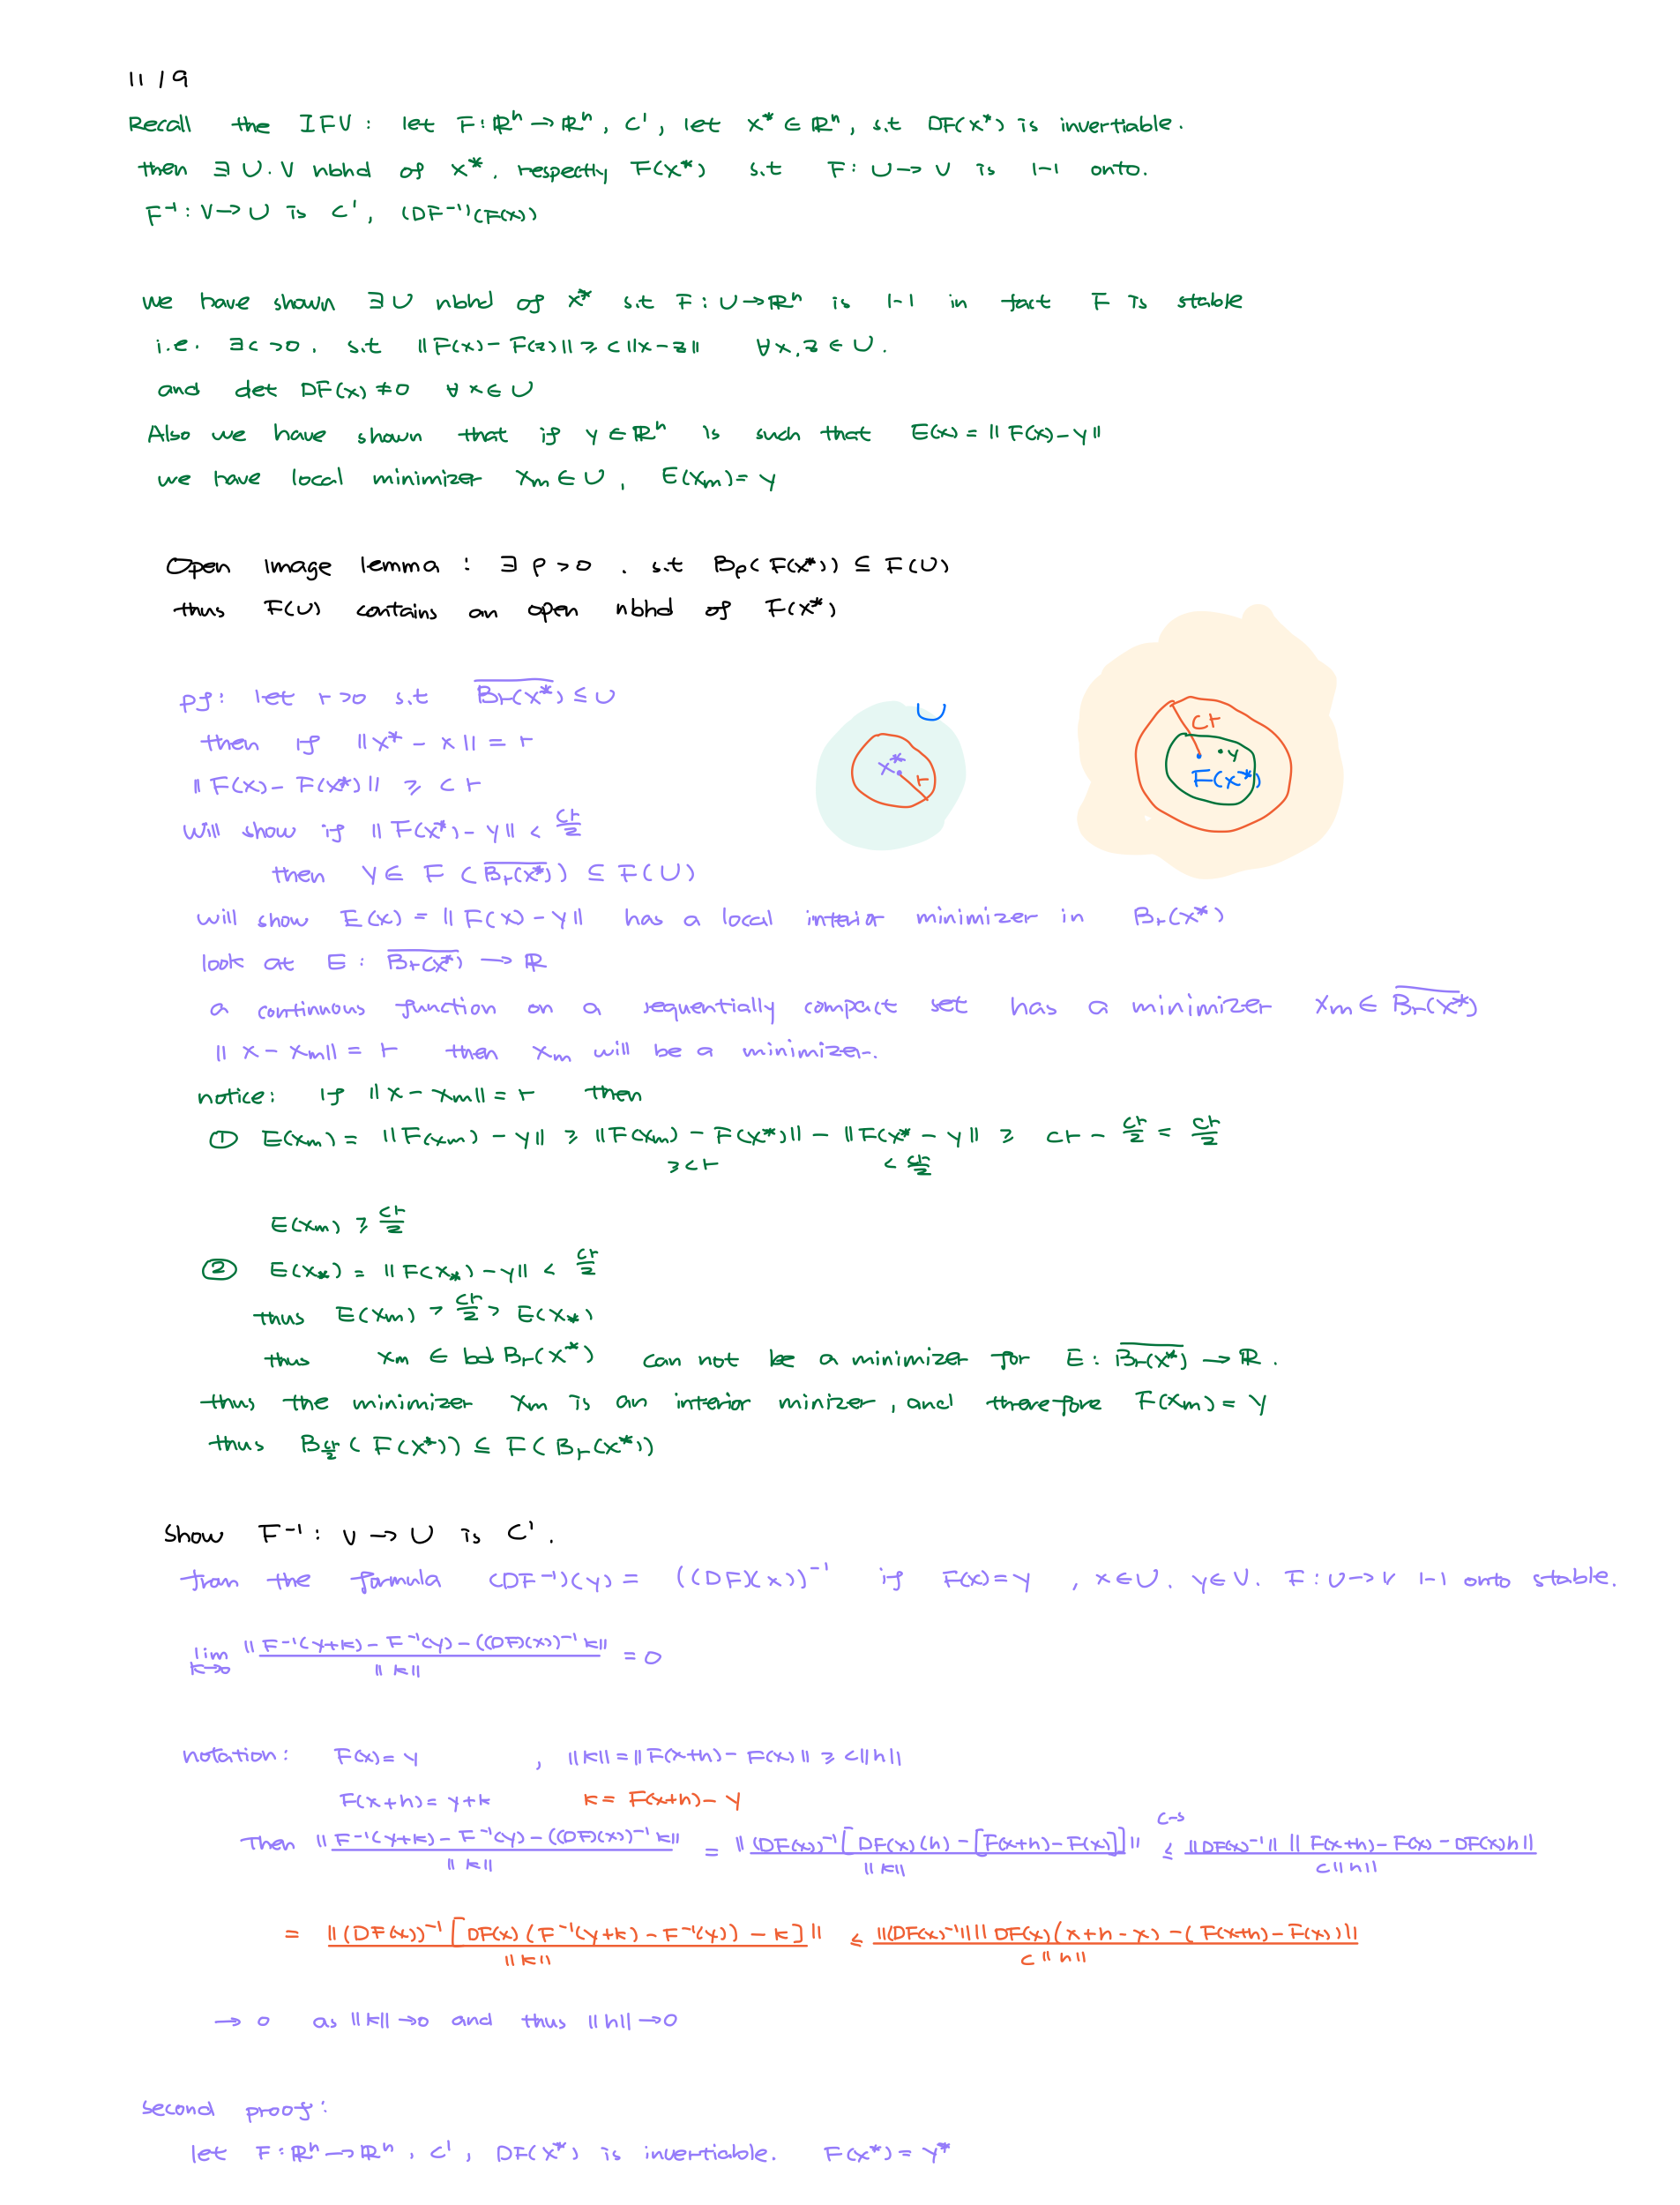 11/9
Recall the IFV : let F: ℝⁿ → ℝⁿ, C', let x* ∈ ℝⁿ, s.t DF(x*) is invertiable.
then ∃ U. V nbhd of x*. respectly F(x*) s.t F: U → V is 1-1 onto.
F⁻¹: V → U is C', (DF⁻¹)(F(x))
we have shown ∃ U nbhd of x* s.t F: U → ℝⁿ is 1-1 in fact F is stable
i.e. ∃c >0. s.t ||F(x) - F(z)|| ≥ c||x-z|| ∀x,z ∈ U.
and det DF(x) ≠ 0 ∀ x ∈ U
Also we have shown that if y ∈ ℝⁿ is such that E(x) = ||F(x) - y||
we have local minimizer xₘ ∈ U, E(xₘ) = y
Open image lemma : ∃ ρ > 0 . s.t B_ρ(F(x*)) ⊆ F(U)
thus F(U) contains an open nbhd of F(x*)
pf: let r >0 s.t \overline{B_r(x*)} ⊆ U
then if ||x* - x|| = r
||F(x) - F(x*)|| ≥ cr
Will show if ||F(x*) - y|| < cr/2
then y ∈ F(\overline{B_r(x*)}) ⊆ F(U)
U
x*
r
cr
y
F(x*)
will show E(x) = ||F(x) - y|| has a local interior minimizer in B_r(x*)
look at E : \overline{B_r(x*)} → ℝ
a continuous function on a sequentially compact set has a minimizer xₘ ∈ \overline{B_r(x*)}
||x - xₘ|| = r then xₘ will be a minimizer.
notice: if ||x - xₘ|| = r then
① E(xₘ) = ||F(xₘ) - y|| ≥ ||F(xₘ) - F(x*)|| - ||F(x* - y|| ≥ cr - cr/2 = cr/2
≥ cr < cr/2
E(xₘ) ≥ cr/2
② E(x_*) = ||F(x_*) - y|| < cr/2
thus E(xₘ) > cr/2 > E(x_*)
thus xₘ ∈ bd B_r(x*) can not be a minimizer for E: \overline{B_r(x*)} → ℝ.
thus the minimizer xₘ is an interior minizer, and therefore F(xₘ) = y
thus B_{cr/2}(F(x*)) ⊆ F(B_r(x*))
Show F⁻¹: V → U is C'.
from the formula (DF⁻¹)(y) = ((DF)(x))⁻¹ if F(x) = y , x ∈ U. y ∈ V. F: U → V 1-1 onto stable.
lim_{k→0} ||F⁻¹(y+k) - F⁻¹(y) - ((DF)(x))⁻¹ k|| / ||k|| = 0
notation: F(x) = y , ||k|| = ||F(x+h) - F(x)|| ≥ c||h||
F(x+h) = y+k k = F(x+h) - y
Then ||F⁻¹(y+k) - F⁻¹(y) - ((DF)(x))⁻¹ k|| / ||k|| = ||(DF(x))⁻¹[DF(x)(h) - [F(x+h) - F(x)]]|| / ||k|| ≤^{C-S} ||DF(x)⁻¹|| ||F(x+h) - F(x) - DF(x)h|| / c||h||
= ||(DF(x))⁻¹[DF(x)(F⁻¹(y+k) - F⁻¹(y)) - k]|| / ||k|| ≤ ||(DF(x)⁻¹|| || DF(x)(x+h-x) - (F(x+h) - F(x))|| / c||h||
→ 0 as ||k|| → 0 and thus ||h|| → 0
second proof:
let F: ℝⁿ → ℝⁿ, C', DF(x*) is invertiable. F(x*) = y*